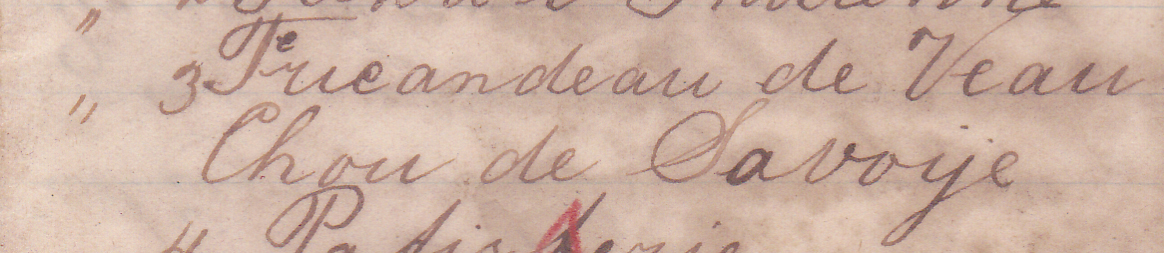 " 3e Fricandeau de Veau
" Chou de Savoije
4 Patisserie